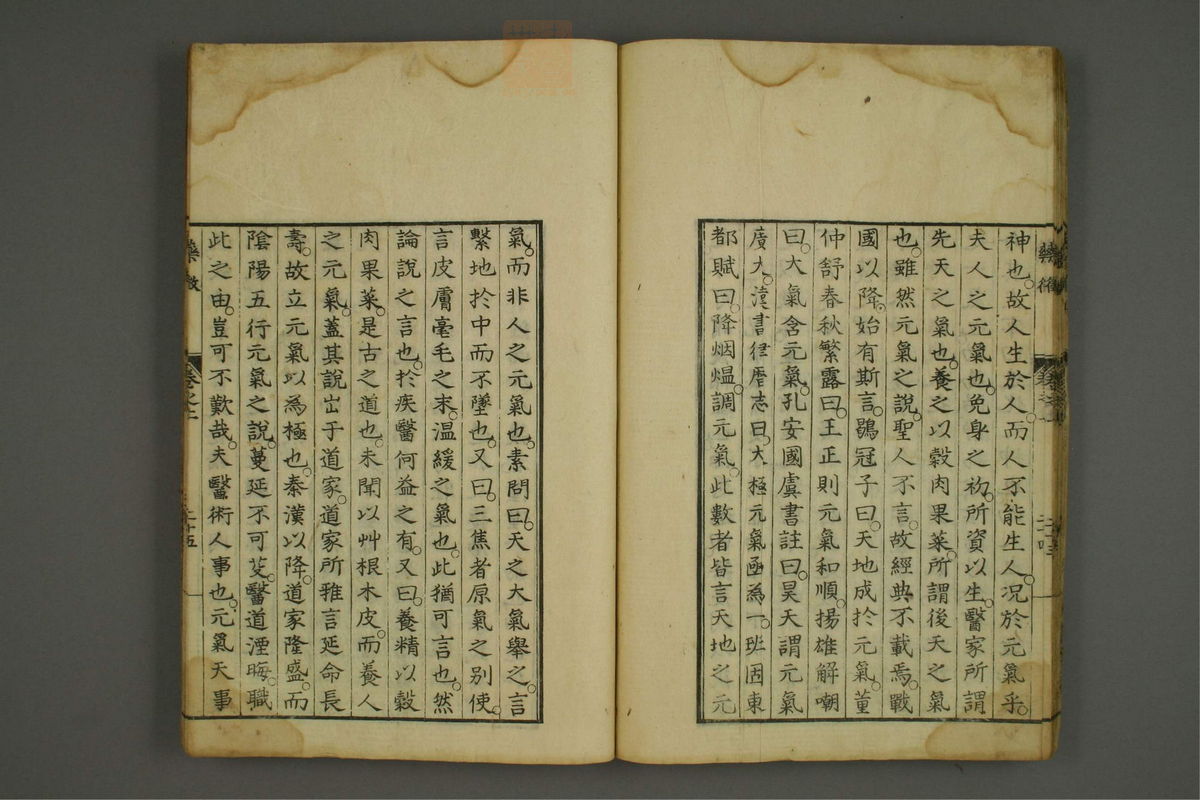 神也。故人生於人。而人不能生人。況於元氣乎。
夫人之元氣也。免身之初。所資以生。醫家所謂
先天之氣也。養之以穀肉果菜。所謂後天之氣
也。雖然元氣之說。聖人不言。故經典不載焉。戰
國以降。始有斯言。鶡冠子曰。天地成於元氣。董
仲舒春秋繁露曰。王正則元氣和順。揚雄解嘲
曰。大氣含元氣。孔安國虞書註曰。昊天謂元氣
廣大。漢書律曆志曰。大極元氣函為一。班固東
都賦曰。降烟熅。調元氣。此數者皆言天地之元
氣。而非人之元氣也。素問曰。天之大氣舉之。言
繫地於中而不墜也。又曰。三焦者原氣之別使。
言皮膚毫毛之末。温緩之氣也。此猶可言也。然
論說之言也。於疾醫何益之有。又曰。養精以穀
肉果菜。是古之道也。未聞以艸根木皮。而養人
之元氣。蓋其說出于道家。道家所雅言延命長
壽。故立元氣以為極也。秦漢以降。道家隆盛。而
陰陽五行元氣之說。蔓延不可芟。醫道湮晦。職
此之由。豈可不歎哉。夫醫術人事也。元氣天事
藥徵
卷之二
二十五